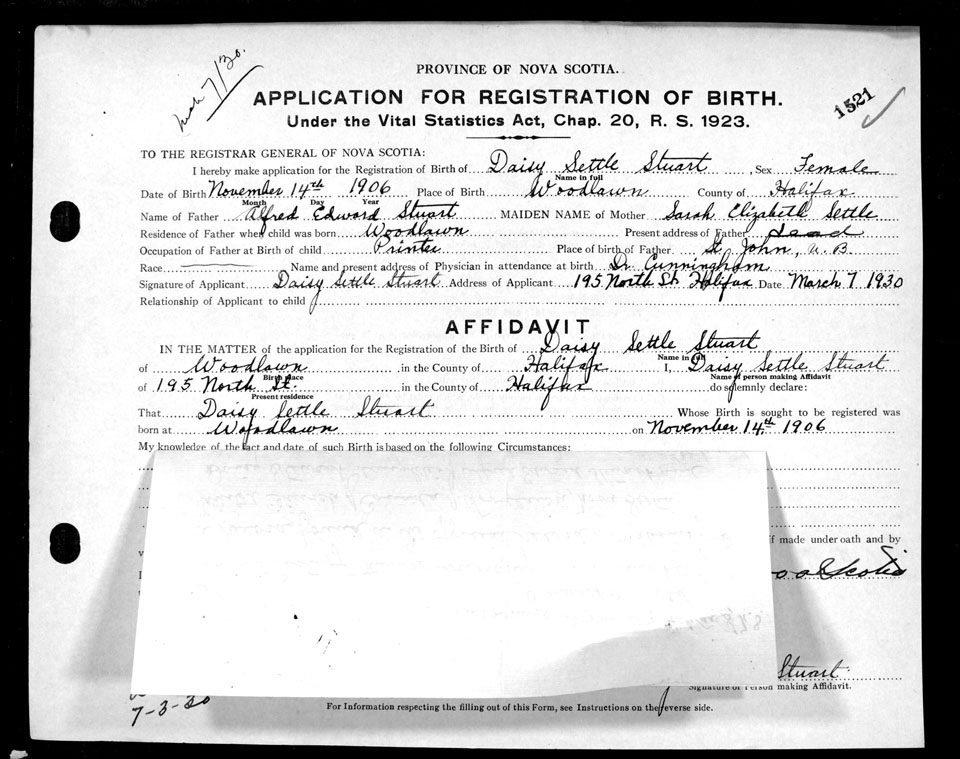 7/30.
PROVINCE OF NOVA SCOTIA.
APPLICATION FOR REGISTRATION OF BIRTH.
1521
Under the Vital Statistics Act, Chap. 20, R. S. 1923.
TO THE REGISTRAR GENERAL OF NOVA SCOTIA:
I hereby make application for the Registration of Birth of Daisy Settle Stuart, Sex Female
Name in full
Date of Birth November 14th 1906 Place of Birth Woodlawn County of Halifax
Month Day Year
Name of Father Alfred Edward Stuart MAIDEN NAME of Mother Sarah Elizabeth Settle
Residence of Father when child was born Woodlawn Present address of Father
Occupation of Father at Birth of child Printer Place of birth of Father St John, N. B
Race Name and present address of Physician in attendance at birth Dr. Cunningham
Signature of Applicant Daisy Settle Stuart Address of Applicant 195 North St. Halifax Date March 7 1930
Relationship of Applicant to child
AFFIDAVIT
IN THE MATTER of the application for the Registration of the Birth of Daisy Settle Stuart
Name in full
of Woodlawn in the County of Halifax I, Daisy Settle Stuart
Birth place Name of person making Affidavit
of 195 North St. in the County of Halifax do solemnly declare:
Present residence
That Daisy Settle Stuart Whose Birth is sought to be registered was
born at Woodlawn on November 14th 1906
My knowledge of the fact and date of such Birth is based on the following Circumstances:
if made under oath and by
Scotia
Stuart
Signature of Person making Affidavit.
7-3-30
For Information respecting the filling out of this Form, see Instructions on the reverse side.